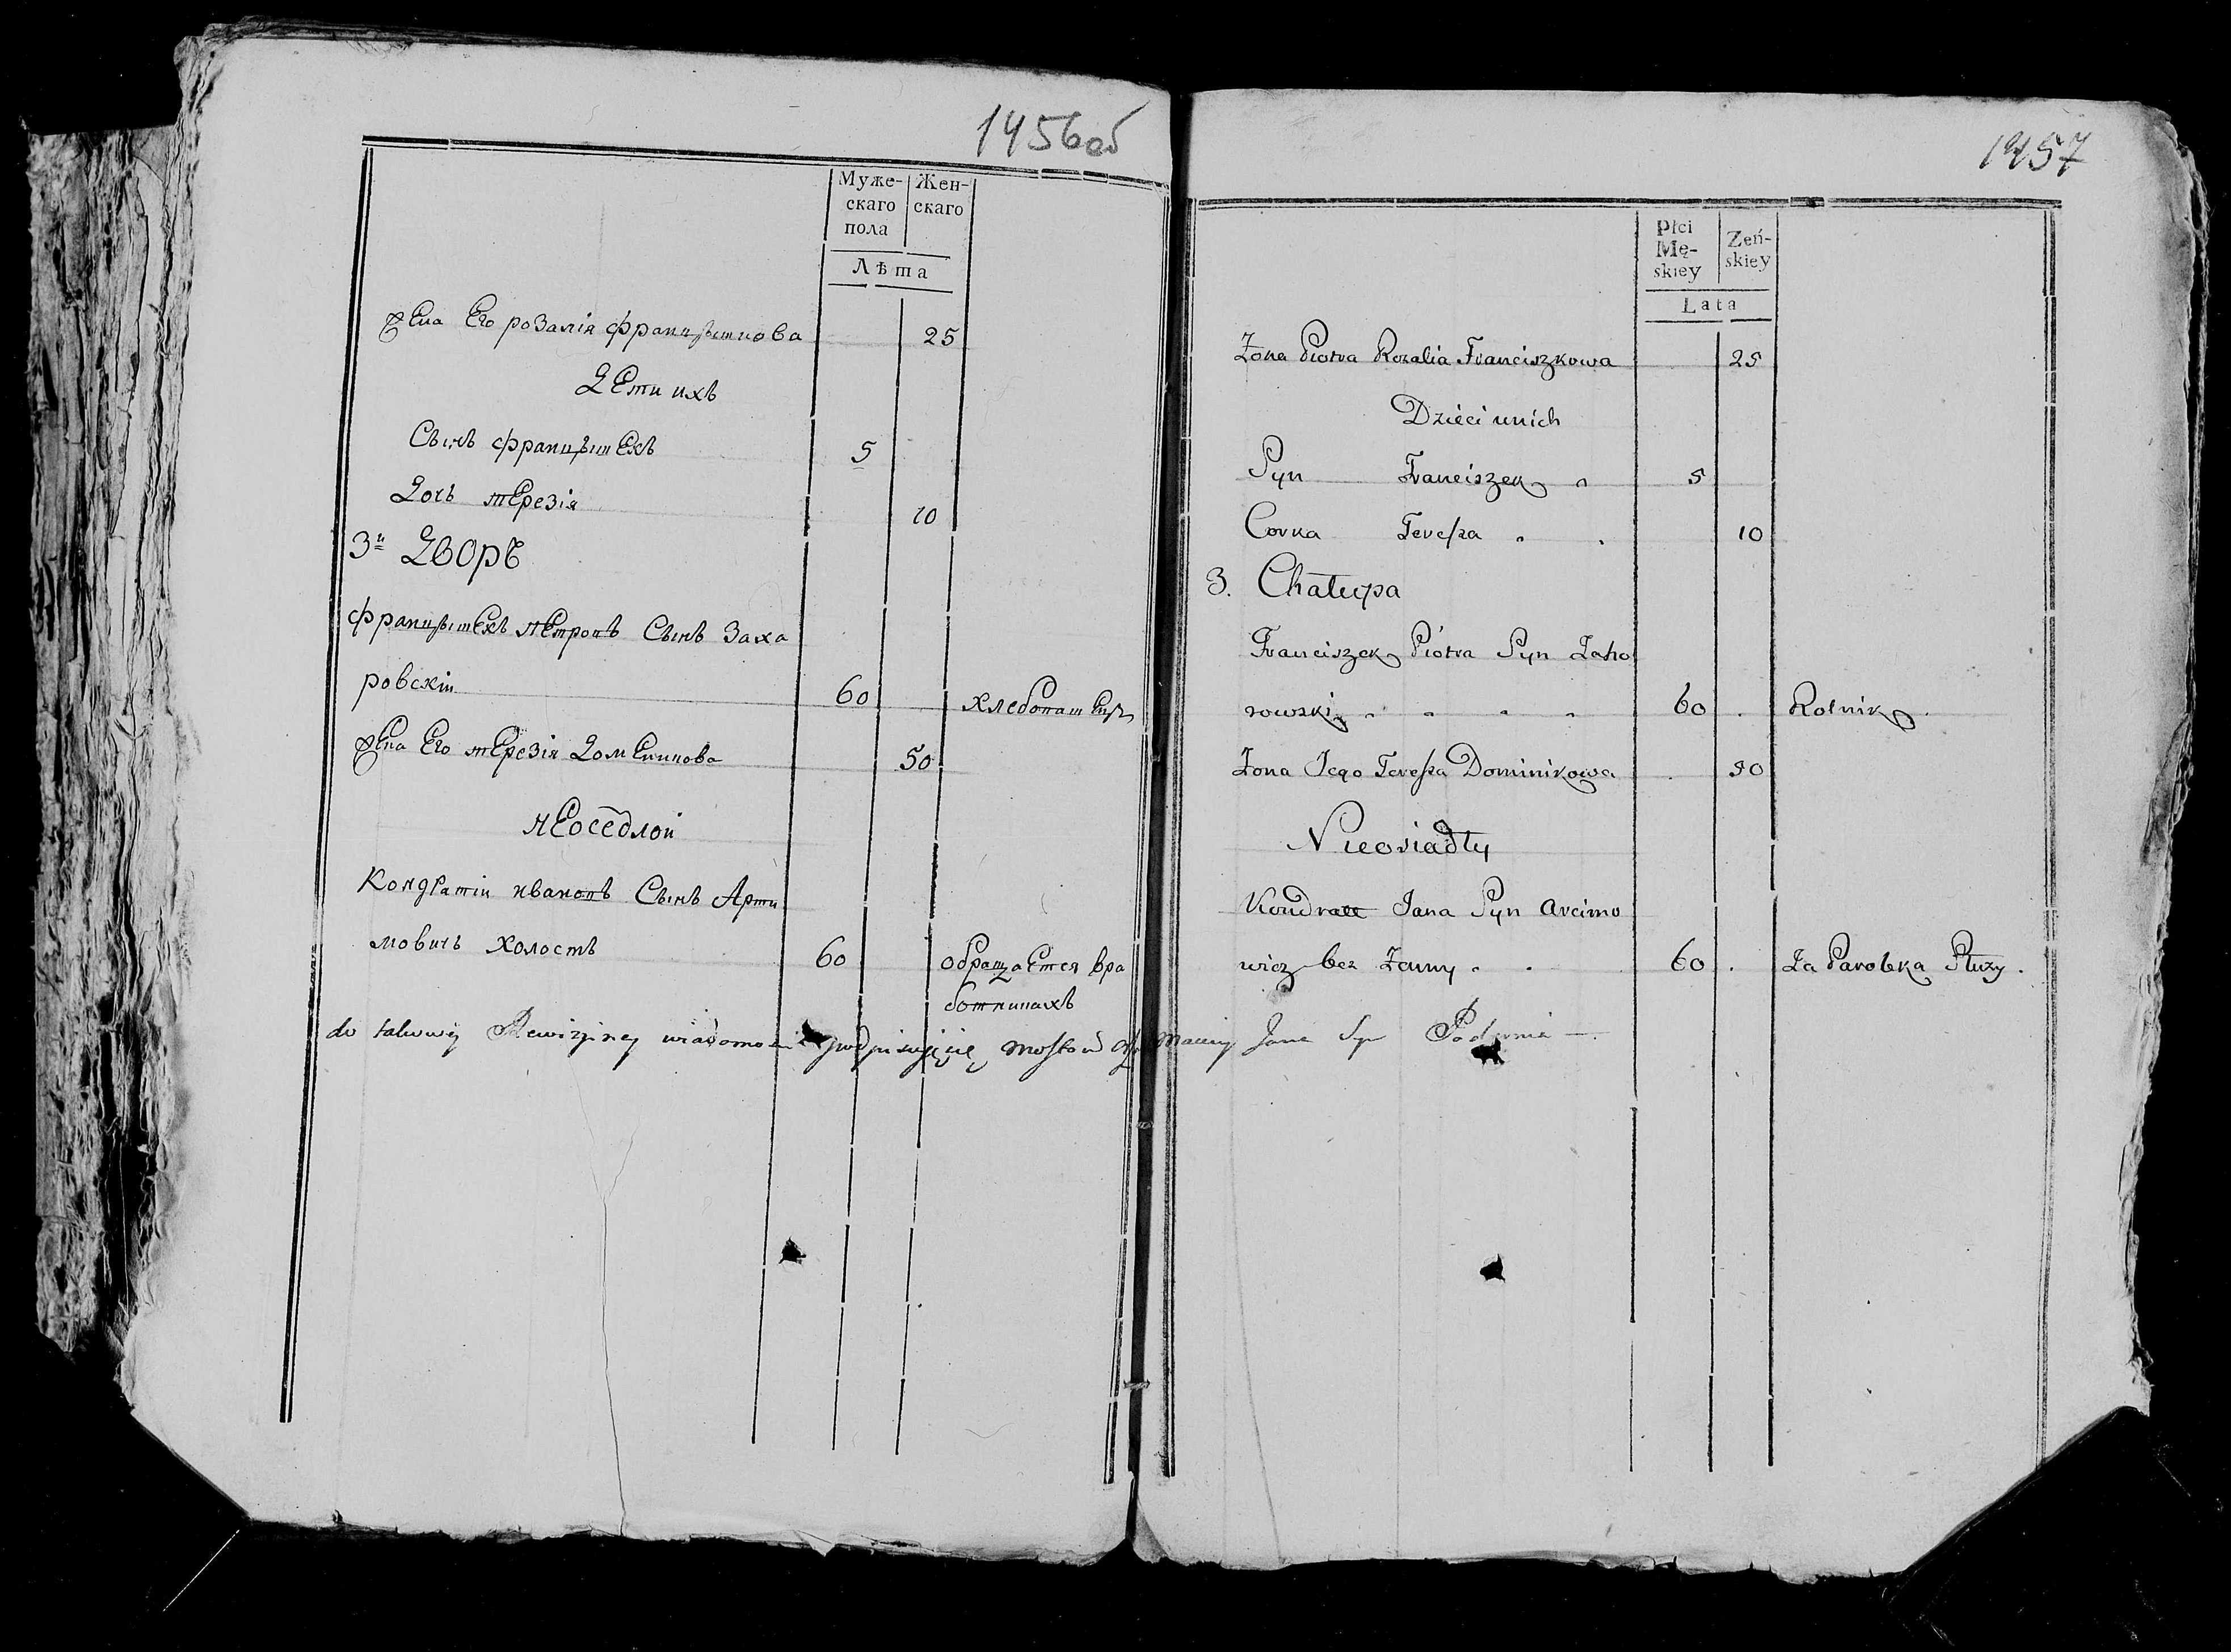 1456об
Муже-
скаго
пола
Жен-
скаго
Лѣта
жена Его розалія францышкова 25
дети ихъ
Сынъ францышекъ 5
дочь терезія 10
3й дворъ
францышекъ петровъ Сынъ Заха
ровскій 60 хлебопашецъ
жена Его терезія доменикова 50
неоседлой
Кондратій ивановъ Сынъ Арти
мовичъ холостъ 60 обращается вра
ботникахъ
do takowey Rewizyiney wiadomości podpisuję się Jana Syn
1457
Płci
Mę-
skiey
Zeń-
skiey
Lata
Zona Piotra Rozalia Franciszkowa 25
Dzieci unich
Syn Franciszek 5
Corka Teressa 10
3. Chałupa
Franciszek Piotra Syn Zaho
rowski 60 Rolnik
Zona Jego Teressa Dominikowa 50
Nieosiadły
Kondratt Jana Syn Arcimo
wicz bez Zenny 60 Za Parobka Służy.